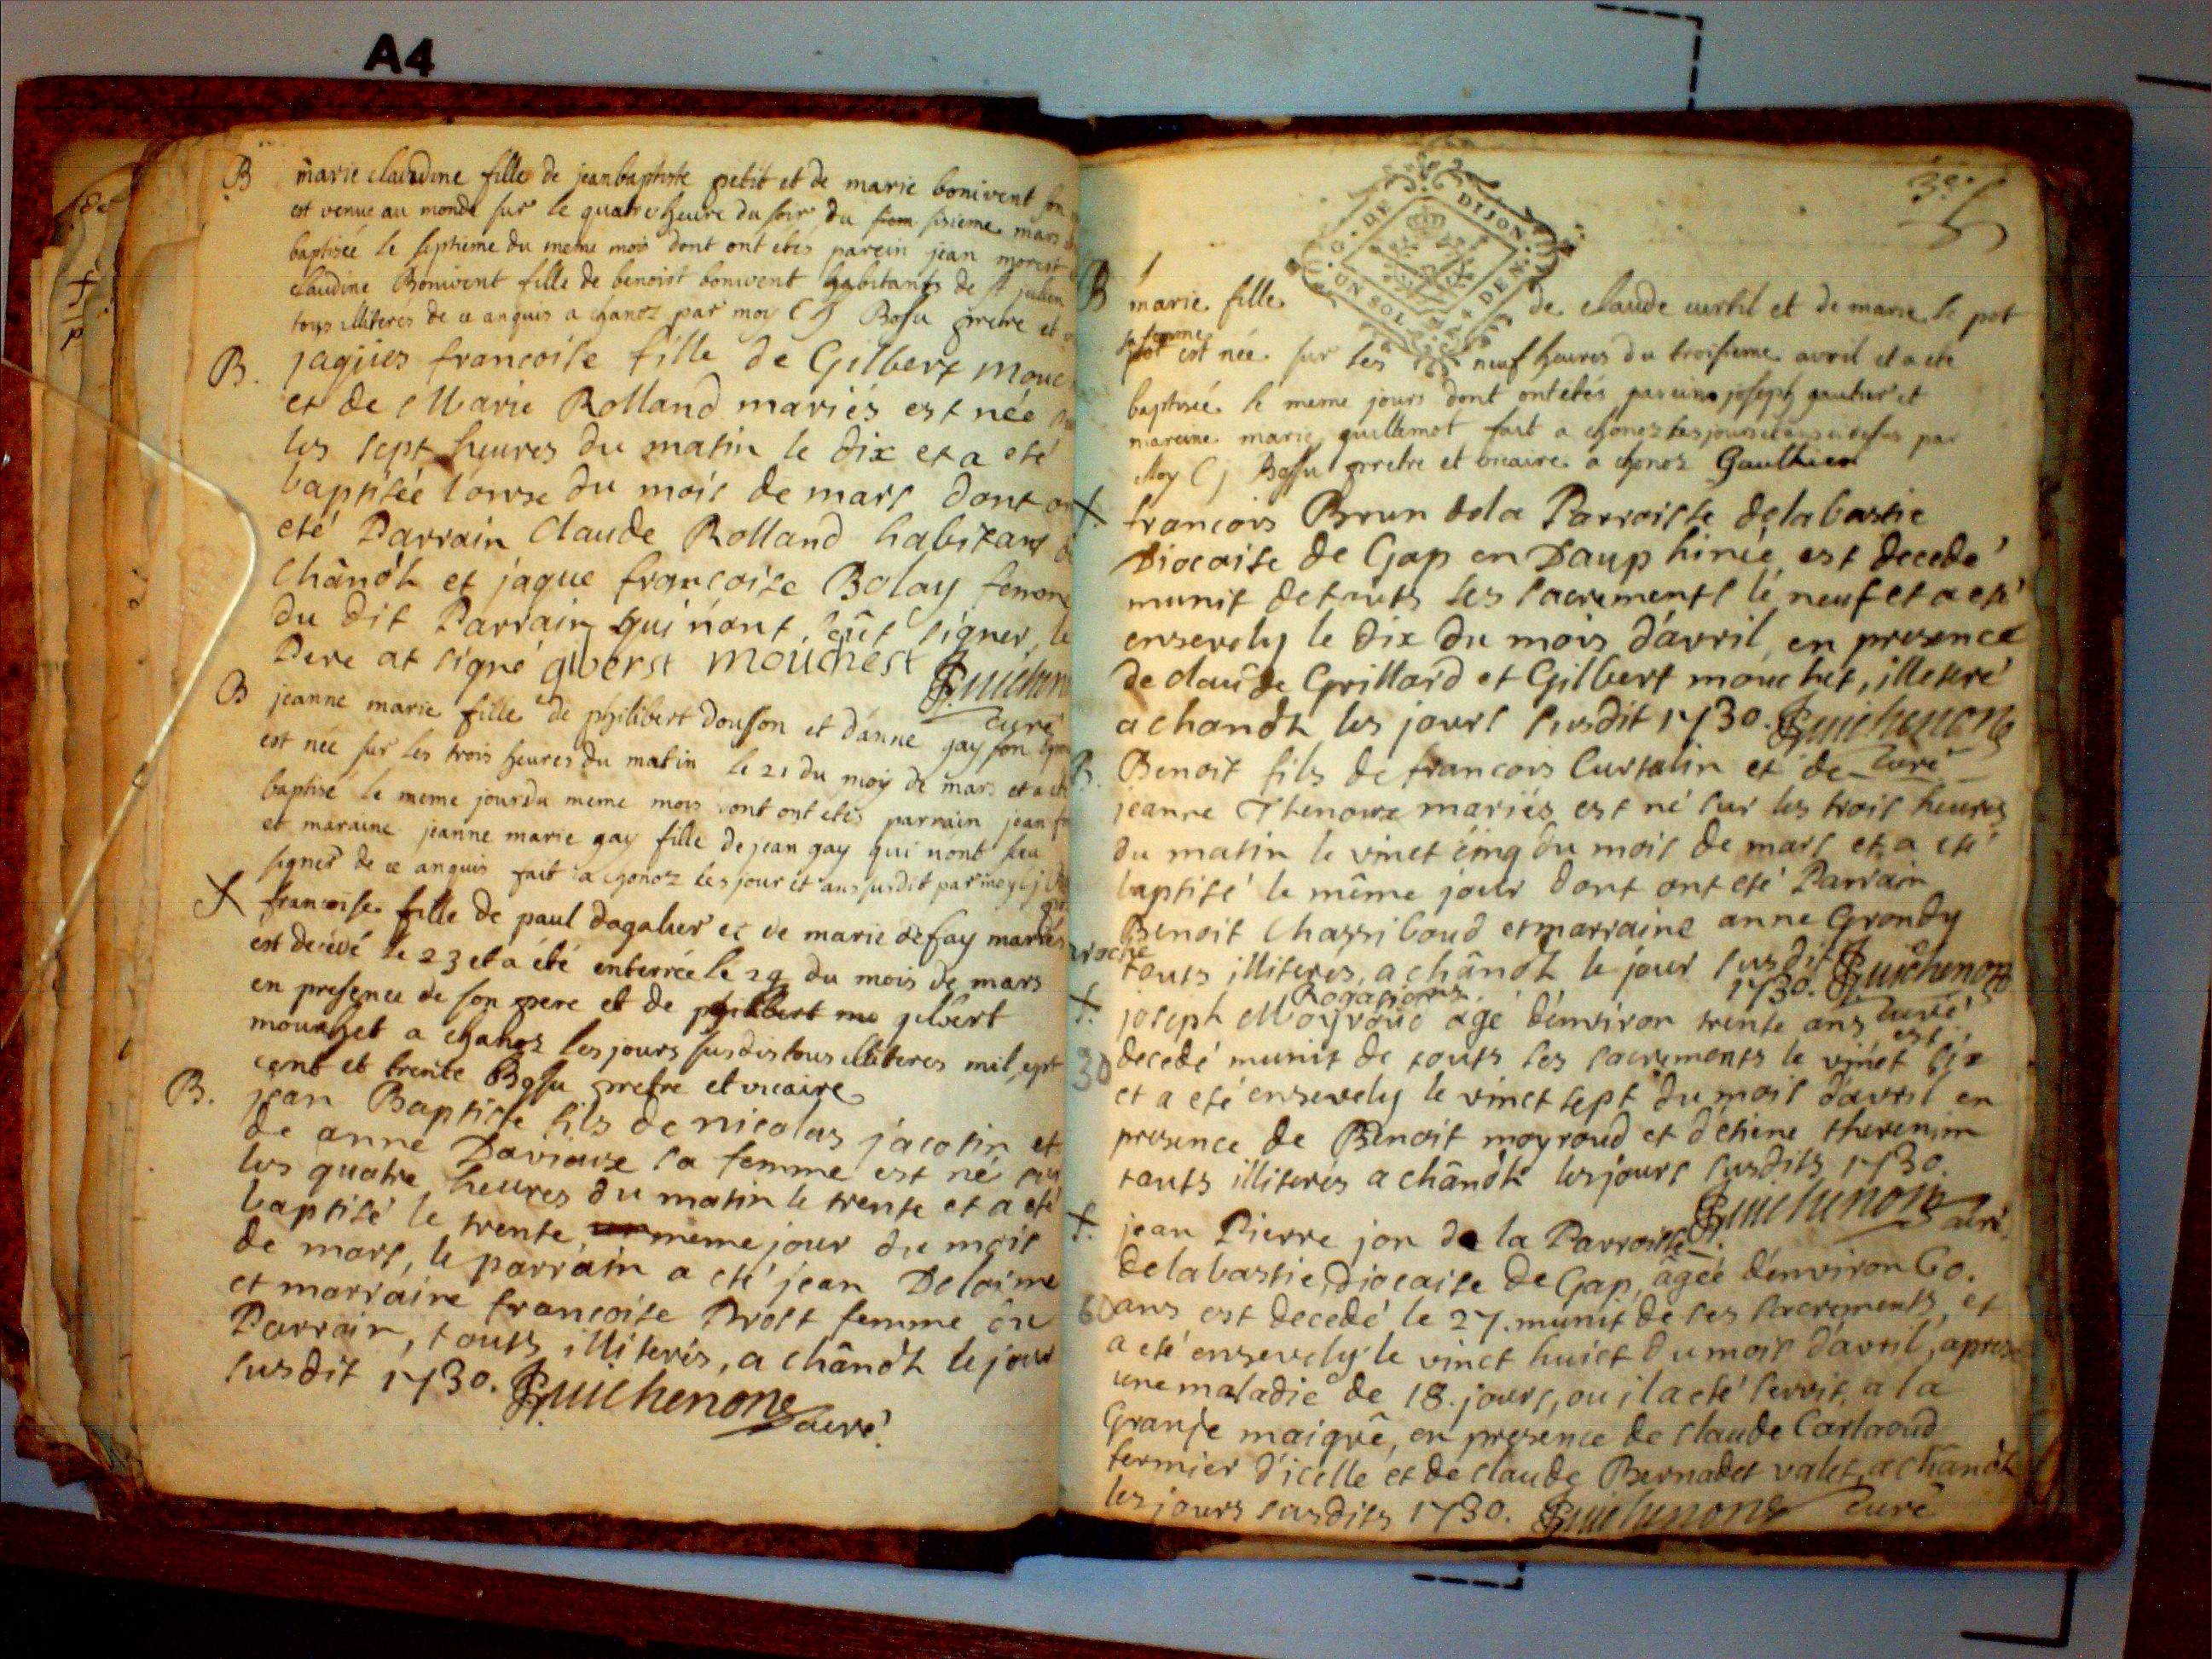 A4
B marie claudine fille de jeanbaptiste petit et de marie bonivent son
est venue au monde sur le quatre heure du soir du sixieme mars
baptisée le septieme du meme mois dont ont etes parein jean morest
claudine Bonivent fille de benoist bonivent habitants de st julien
tous illiteres de ce anquis a chanoz par moy C j Bossu pretre et
B. jaques francoise fille de Gilbert mouc
et de Marie Rolland mariés est née
les sept heures du matin le dix et a eté
baptisée l'onse du mois de mars dont on
eté Parrain Claude Rolland habitant
Chânoz et jaque francoise Bolay femme
du dit Parrain qui n'ont sçût signer, le
Pere at signé gilberst mouchest
Guichenon
curé
B jeanne marie fille de philibert douson et d'anne gay son
est née sur les trois heures du matin le 21 du moy de mars et a
baptisé le meme jour du meme mois dont ont etes parrain jean
et maraine jeanne marie gay fille de jean gay qui nont sceu
signer de ce anquis fait a chonoz les jour et ans susdit par moy C j
† francoise fille de paul dagalier et de marie defay mariés
est decedé le 23 et a été enterrée le 24 du mois de mars
en presence de son pere et de philibert mo gilbert
mouchet a chanoz les jours susdis tous illiteres mil sept
cent et trente Bossu pretre et vicaire
B. jean Baptiste fils de nicolas jacotin et
de anne Davioux sa femme est né sur
les quatre heures du matin le trente et a eté
baptisé le trente un meme jour du mois
de mars, le parrain a eté jean Delaime
et marraine francoise Prost femme du
Parrain, touts illiterés, a chânoz le jour
susdit 1730. Guichenon
curé.
3e.
G. DE DIJON. UN SOL DEN.
B marie fille de claude curtil et de marie le pot
sa femme
pot est née sur les neuf heures du troisieme avril et a ete
baptisée le meme jours dont ont etés parein joseph gautier et
mareine marie guillemot fait a chonoz les jours et ans susdits par
Moy C j Bossu pretre et vicaire a chonoz Gaulthier
† francois Brun dela Parroisse delabastie
Diocaise de Gap en Dauphinée, est decedé
munit detouts ses sacrements le neuf et a eté
ensevely le dix du mois d'avril, en presence
de claude Grillard et Gilbert mouchet, illeteré
a chanoz les jours susdit 1730. Guichenon
curé
B. Benoit fils de francois Curtalin et de
jeanne Thenoux mariés est né sur les trois heures
du matin le vinct cinq du mois de mars et a eté
baptisé le même jour dont ont eté Parrain
Benoit Chassiboud et marraine anne Grondy
touts illiterés, a chânoz le jour susdit
1730. Guichenon
curé
Rogations
† joseph Moyroud agé d'environ trente ans est
30 decedé munit de touts ses sacrements le vinct six
et a eté ensevely le vinct sept du mois d'avril en
presence de Benoit moyroud et d'etiene thevenim
touts illiterés a chânoz les jours susdits 1730.
Guichenon
curé
† jean Pierre jon de la Parroisse
delabastie, diocaise de Gap, âgée d'environ 60.
60 ans est decedé le 27. munit de ses sacrements, et
a eté ensevely le vinct huict du mois d'avril, apres
une maladie de 18. jours, ou il a eté servit, a la
Granje maigrê, en presence de claude Carlaoud
fermier d'icelle et de claude Bernadet valet, a chânoz
les jours susdits 1730. Guichenon curé